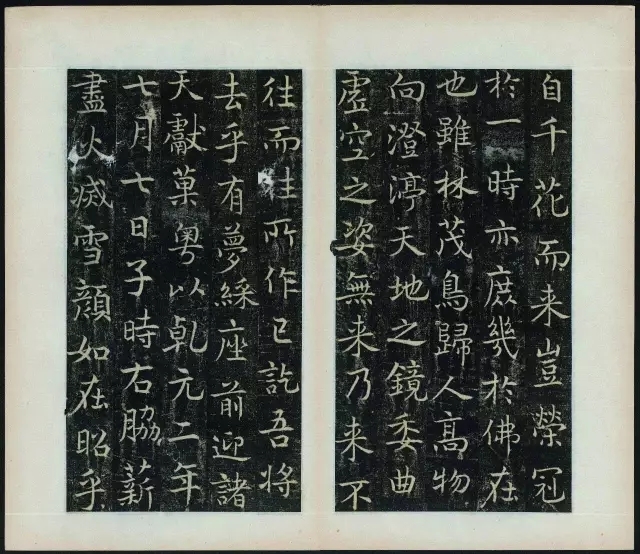 自千花而来豈榮冠
於一時亦庶幾於佛在
也雖林茂鳥歸人高物
向澄渟天地之鏡委曲
虚空之姿無来乃来不
往而往所作已訖吾将
去乎有夢綵座前迎諸
天獻菓粤以乹元二年
七月七日子時右脇薪
盡火滅雪顔如在昭乎